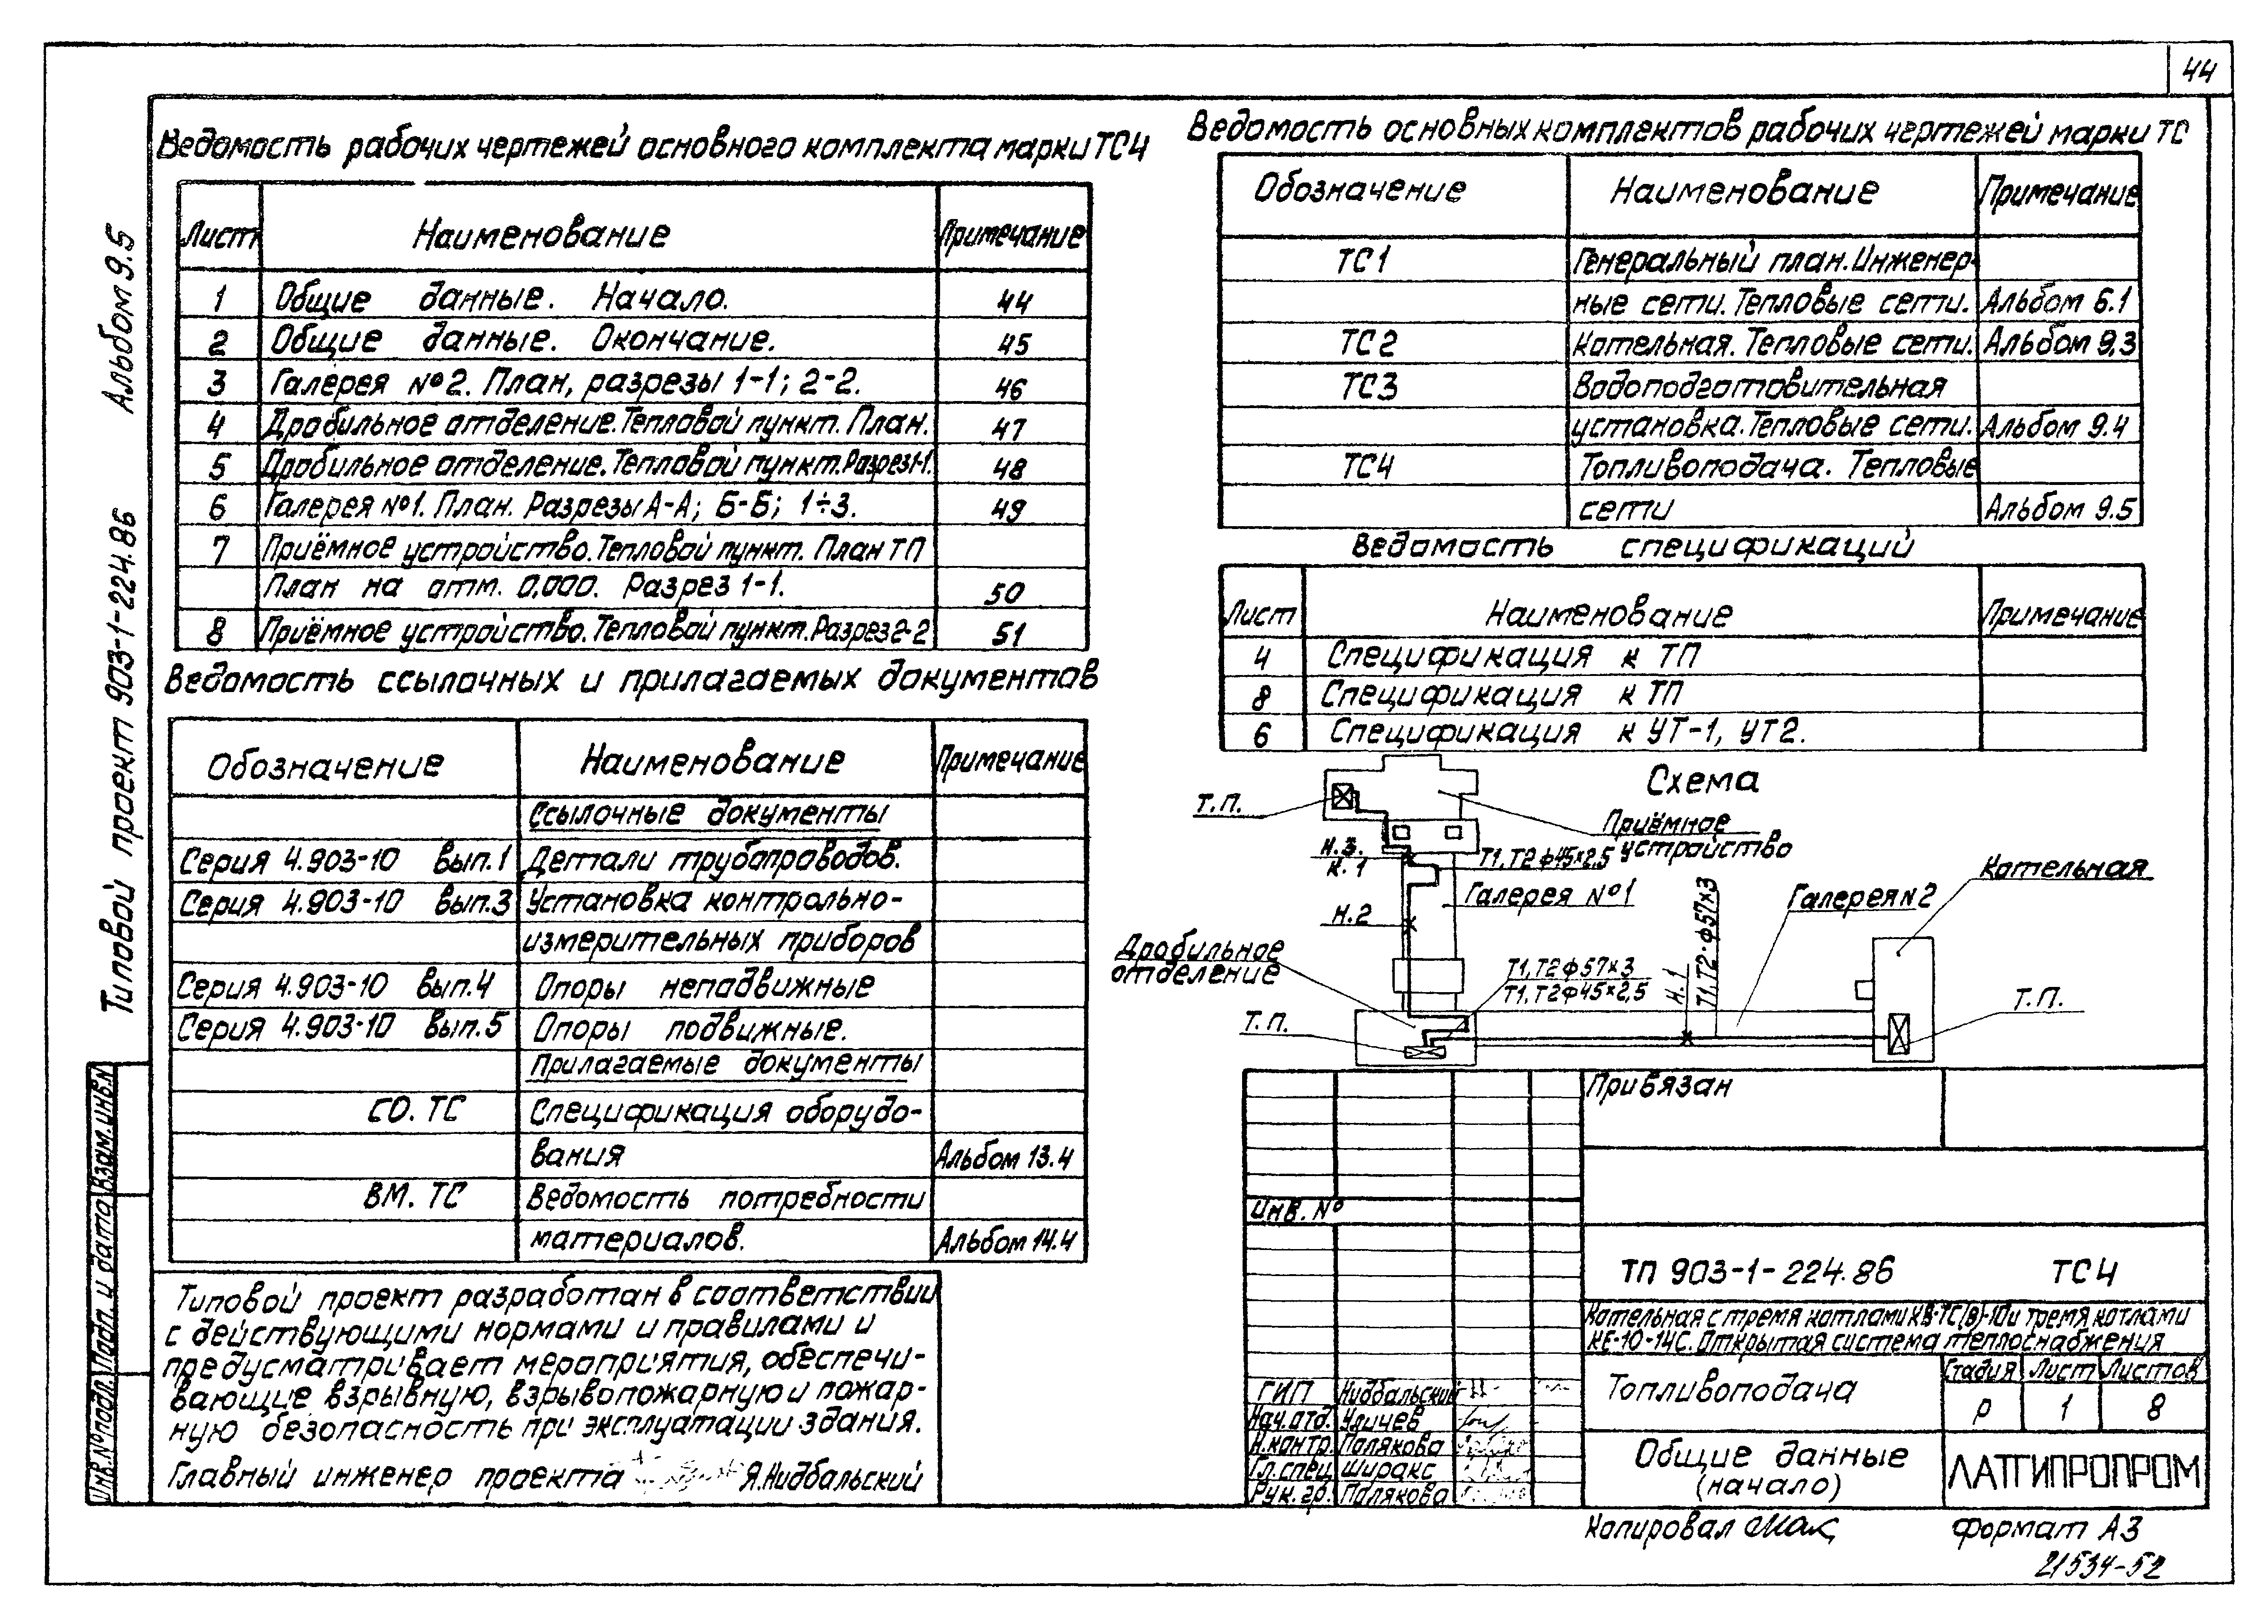 44
Альбом 9.5
Типовой проект 903-1-224.86
Взам.инв.N
Подп. и дата
Инв.№подл.
Ведомость рабочих чертежей основного комплекта марки ТС4
Лист Наименование Примечание
1 Общие данные. Начало. 44
2 Общие данные. Окончание. 45
3 Галерея №2. План, разрезы 1-1; 2-2. 46
4 Дробильное отделение.Тепловой пункт. План. 47
5 Дробильное отделение. Тепловой пункт.Разрез1-1. 48
6 Галерея №1. План. Разрезы А-А; Б-Б; 1÷3. 49
7 Приёмное устройство.Тепловой пункт. План ТП
План на отм. 0,000. Разрез 1-1. 50
8 Приёмное устройство.Тепловой пункт.Разрез 2-2 51
Ведомость ссылочных и прилагаемых документов
Обозначение Наименование Примечание
Ссылочные документы
Серия 4.903-10 вып.1 Детали трубопроводов.
Серия 4.903-10 вып.3 Установка контрольно-
измерительных приборов
Серия 4.903-10 вып.4 Опоры неподвижные
Серия 4.903-10 вып.5 Опоры подвижные.
Прилагаемые документы
СО. ТС Спецификация оборудо-
вания Альбом 13.4
ВМ. ТС Ведомость потребности
материалов. Альбом 14.4
Типовой проект разработан в соответствии
с действующими нормами и правилами и
предусматривает мероприятия, обеспечи-
вающие взрывную, взрывопожарную и пожар-
ную безопасность при эксплуатации здания.
Главный инженер проекта Я.Нидбальский
Ведомость основных комплектов рабочих чертежей марки ТС
Обозначение Наименование Примечание
ТС1 Генеральный план.Инженер-
ные сети. Тепловые сети. Альбом 6.1
ТС2 Котельная. Тепловые сети. Альбом 9.3
ТС3 Водоподготовительная
установка.Тепловые сети. Альбом 9.4
ТС4 Топливоподача. Тепловые
сети Альбом 9.5
Ведомость спецификаций
Лист Наименование Примечание
4 Спецификация к ТП
8 Спецификация к ТП
6 Спецификация к УТ-1, УТ2.
Схема
Т.П.
Приёмное
устройство
Н.3.
К.1
Т1,Т2 ф45×2,5
Галерея №1
Н.2
Котельная
Галерея N2
Т1,Т2·ф57×3
Н.1
Дробильное
отделение
Т1,Т2 ф57×3
Т1,Т2ф45×2,5
Т.П.
Т.П.
Привязан
Инв. №
ТП 903-1-224.86 ТС4
Котельная с тремя котлами КВ-ТС(В)-10 и тремя котлами
КЕ-10-14С. Открытая система теплоснабжения
Топливоподача
Стадия Лист Листов
Р 1 8
Общие данные
(начало)
ЛАТГИПРОПРОМ
ГИП Нидбальский
Нач.отд. Уличев
Н.контр. Полякова
Гл.спец Ширакс
Рук. гр. Полякова
Копировал Формат А3
21534-52